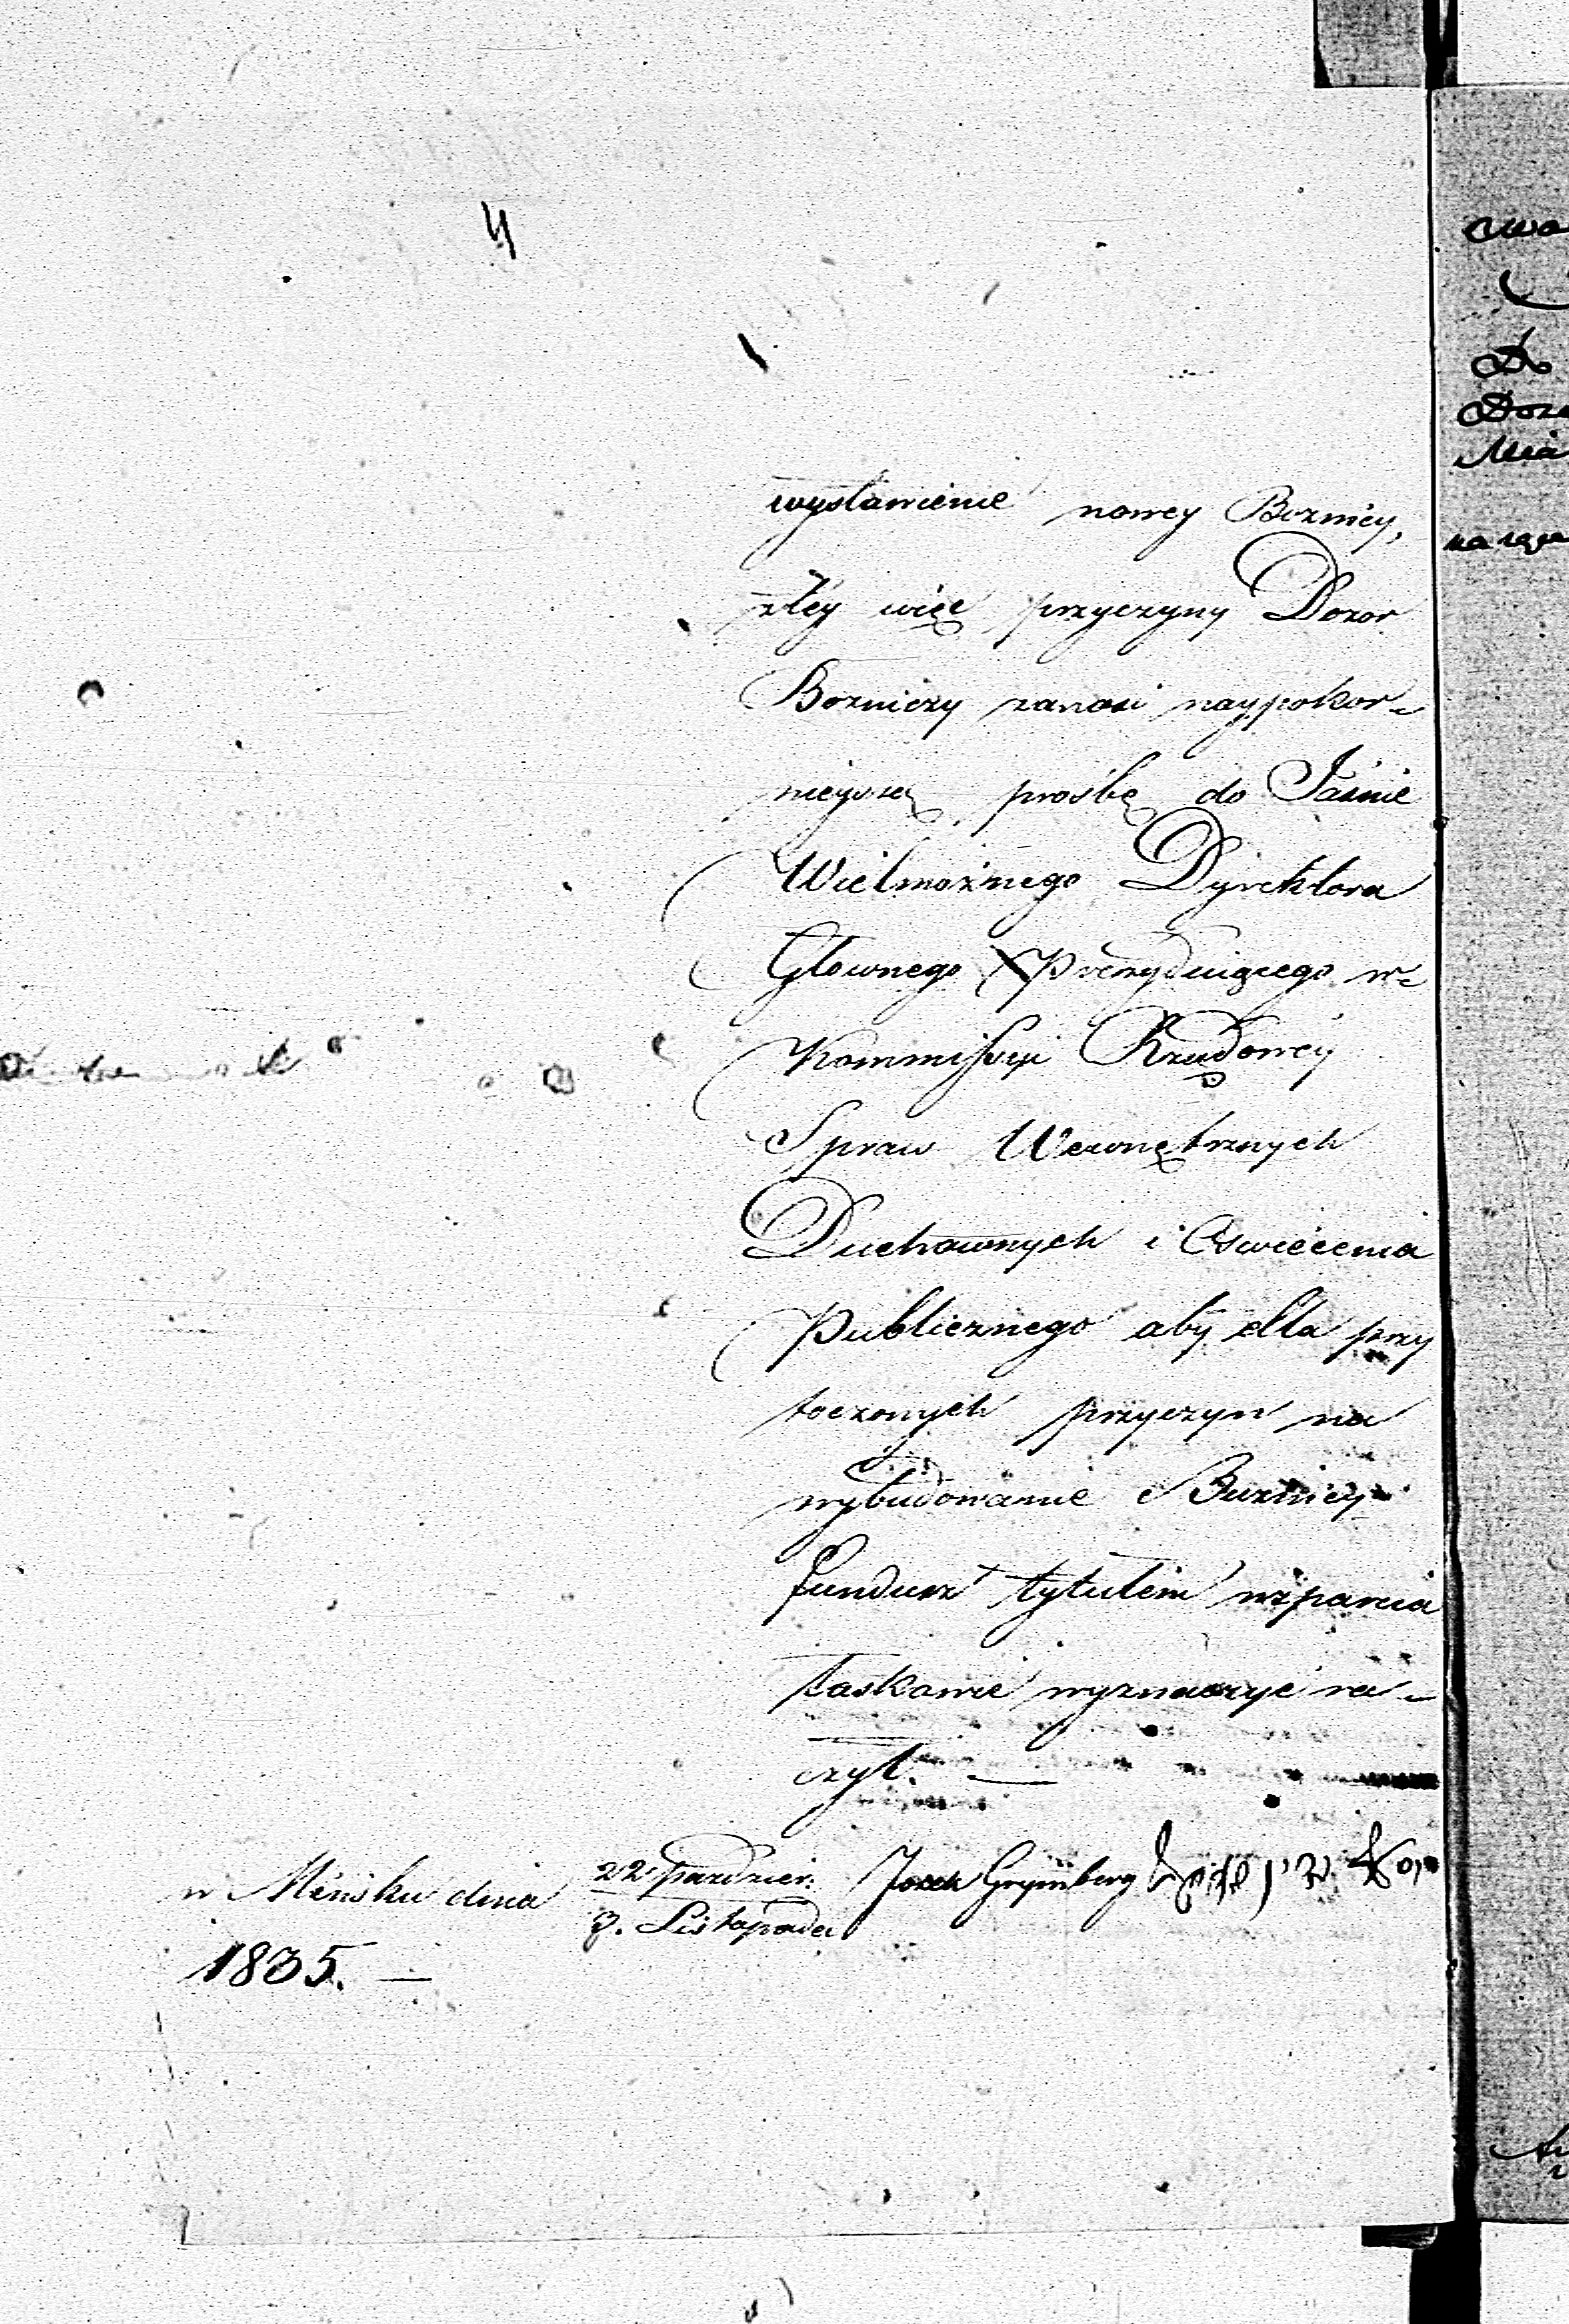 4
wystawienie nowey Bożnicy,
ztey więc przyczyny Dozor
Bożniczy zanosi naypokor-
nieyszą prośbę do Jaśnie
Wielmożnego Dyrektora
Głownego Prezyduiącego w
Kommissyi Rządowey
Spraw Wewnętrznych
Duchownych i Oświecenia
Publicznego aby dla przy
toczonych przyczyn na
wybudowanie Bużnicy
fundusz tytułem wsparcia
łaskawie wyznaczyć ra-
czył. —
w Mińsku dnia 22 Paździer. Josek Grynberg
3. Listopada
1835. —
Do